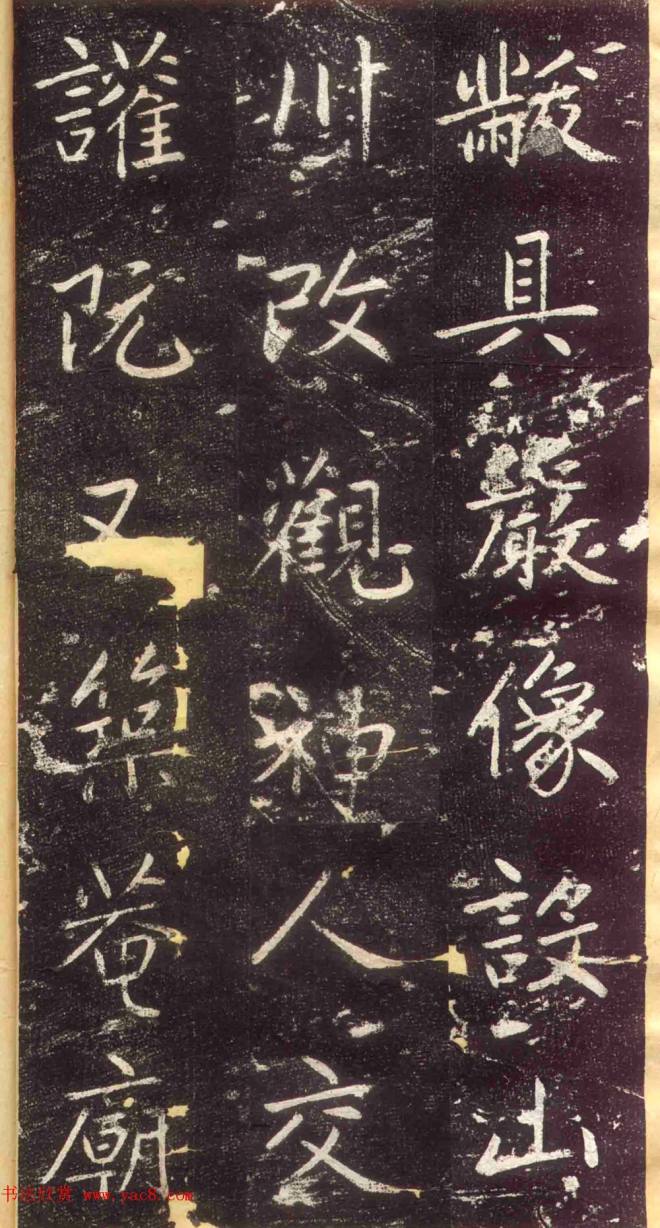 黻具嚴像設山
川改觀神人交
讙既又築菴廟
书法欣赏 www.yac8.com